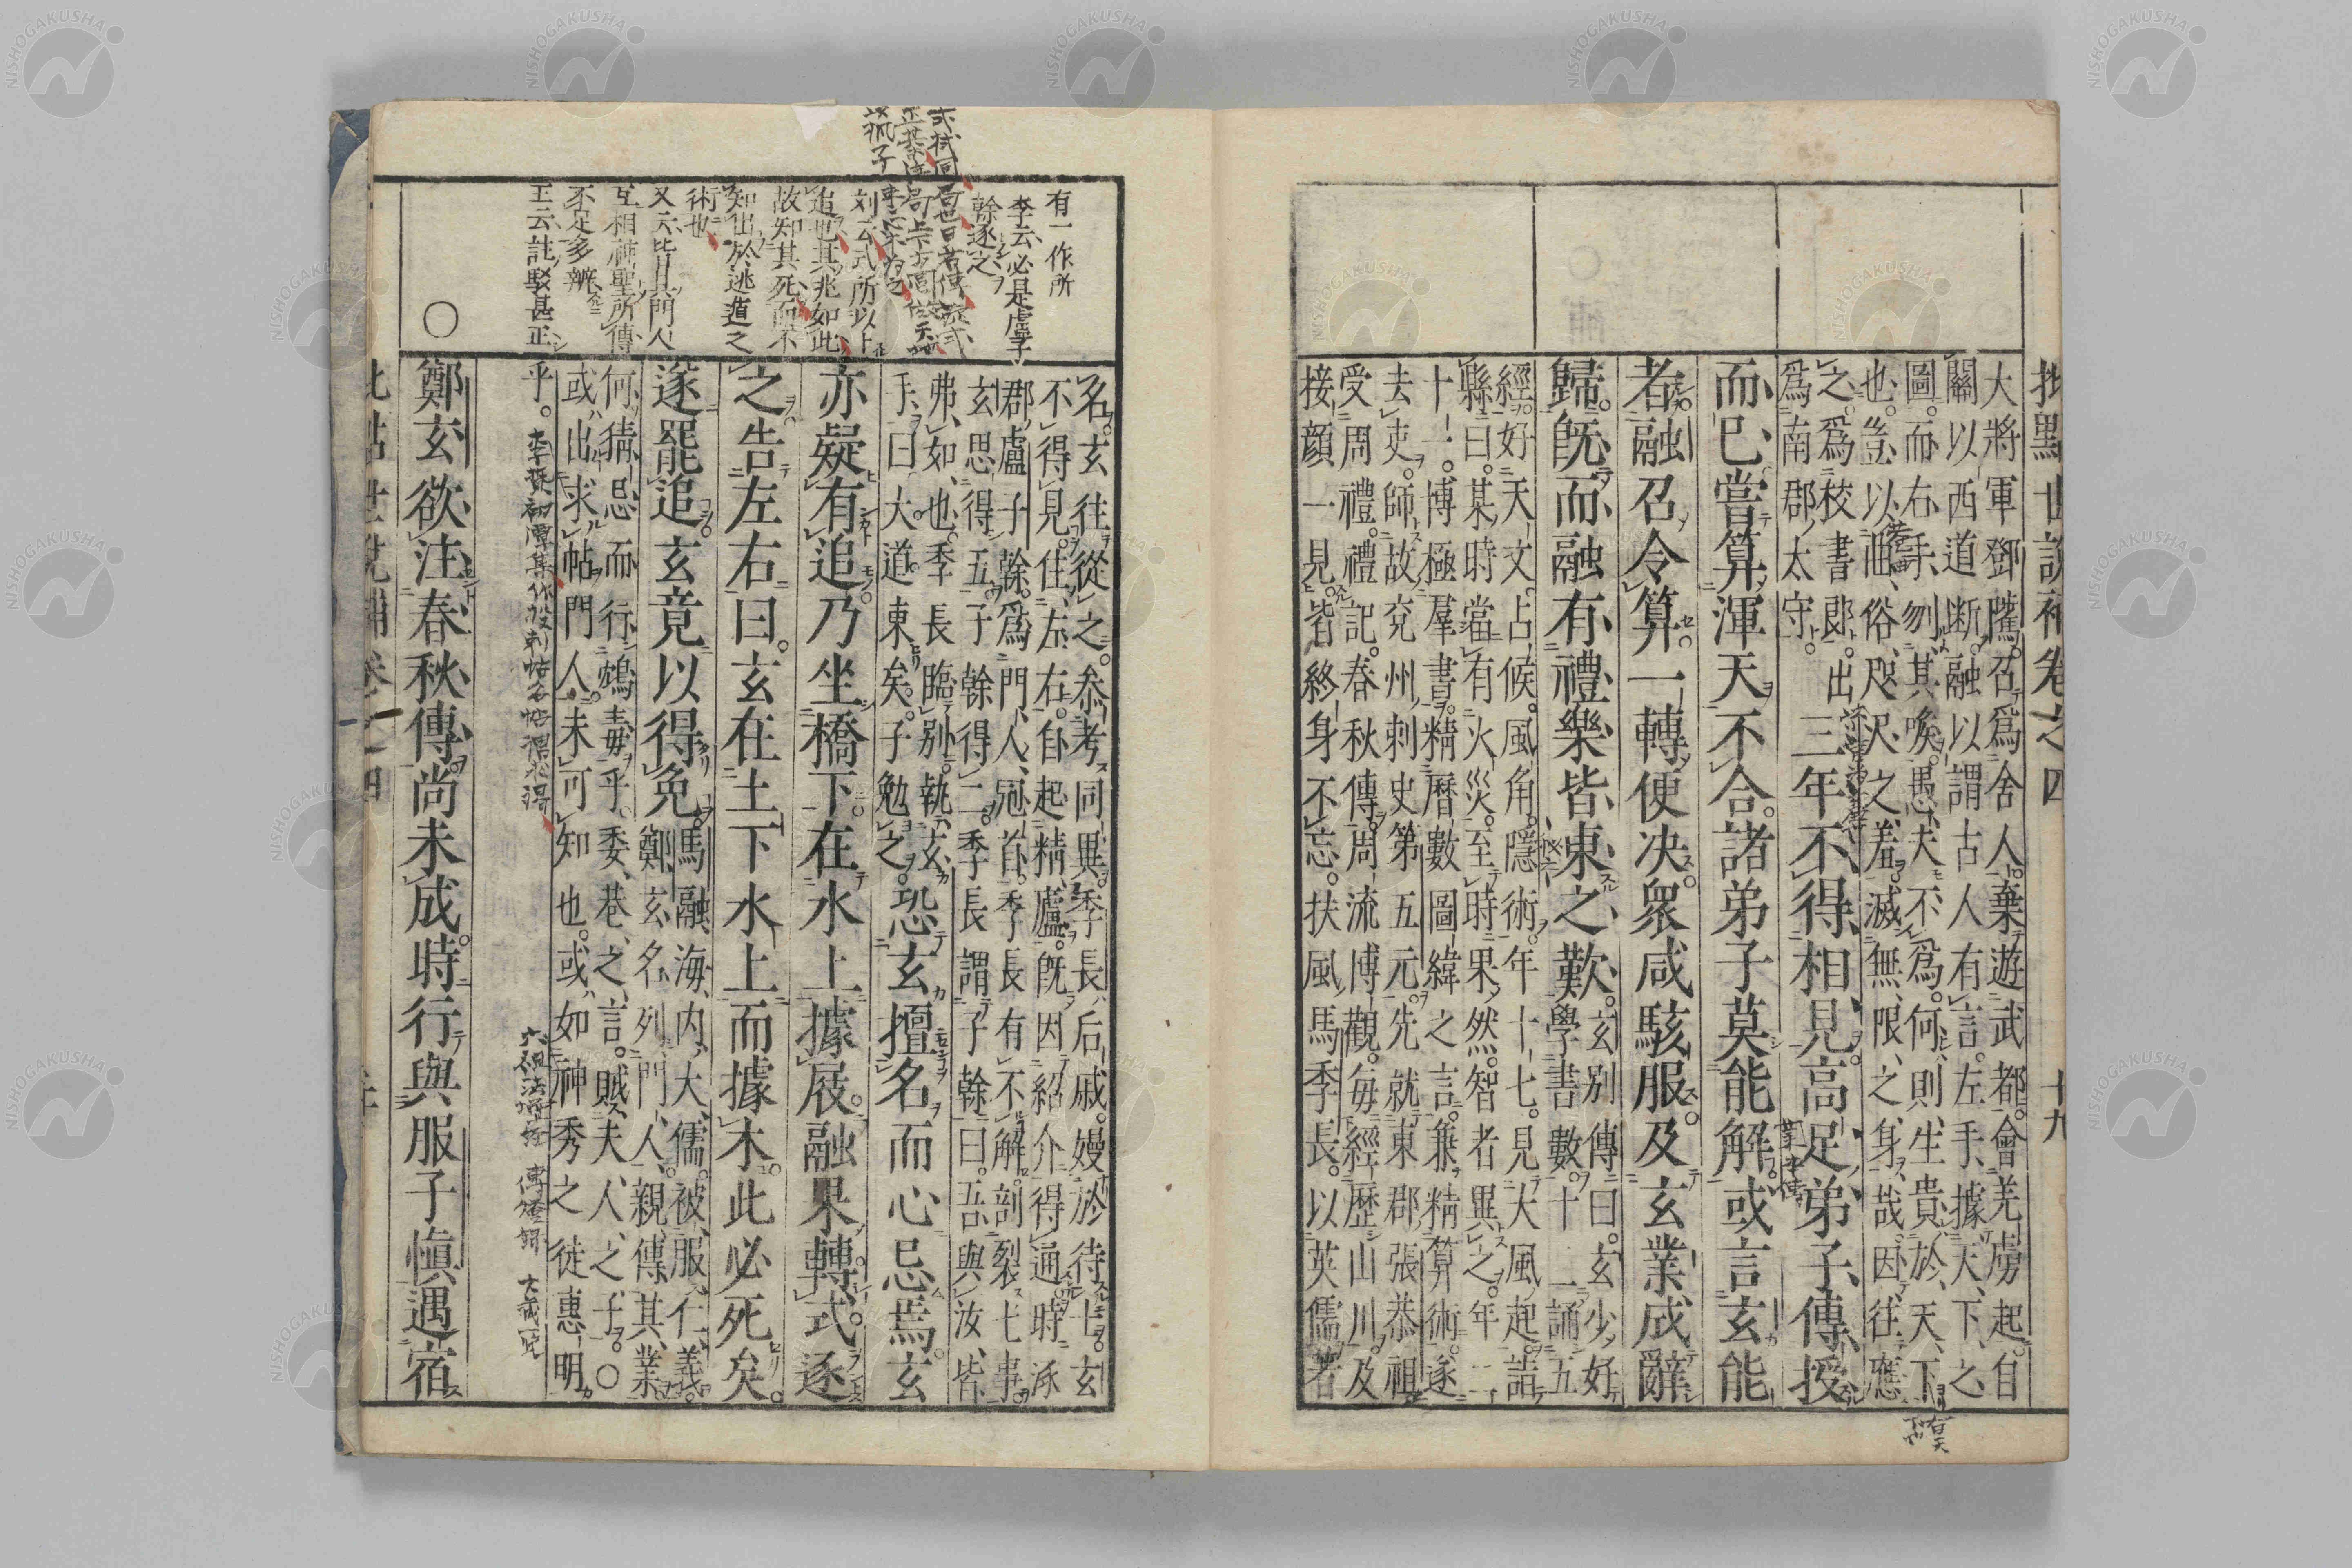 批點世說補卷之四　十九
大將軍鄧隲召爲舍人棄遊武都會羌虜起自
關以西道断融以謂古人有言左手據天下之
圖而右手刎其喉愚夫不爲何則生貴於天下
也豈以曲俗咫尺之羞滅無限之身哉因往應
之爲校書郎出
爲南郡太守
三年不得相見高足弟子傳授
而已嘗算渾天不合諸弟子莫能解或言玄能
者融召令算一轉便决衆咸駭服及玄業成辭
歸旣而融有禮樂皆東之歎
玄別傳曰玄少好
學書數十三誦五
經好天文占候風角隱術年十七見大風起詣
縣曰某時當有火災至時果然智者異之年二
十一博極羣書精曆數圖緯之言兼精算術遂
去吏師故兖州刺史第五元先就東郡張恭祖
受周禮禮記春秋傳周流博觀每經歷山川及
接顔一見皆終身不忘扶風馬季長以英儒著
名玄往從之叅考同異季長后戚嫚於待士玄
不得見住左右自起精廬旣因紹介得通時涿
郡盧子幹爲門人冠首季長有不解剖裂七事
玄思得五子幹得二季長謂子幹曰吾與汝皆
弗如也季長臨別執玄
手曰大道東矣子勉之
恐玄擅名而心忌焉玄
亦疑有追乃坐橋下在水上據屐融果轉式逐
之告左右曰玄在土下水上而據木此必死矣
遂罷追玄竟以得免
馬融海内大儒被服仁義
鄭玄名列門人親傳其業
何猜忌而行鴆毒乎委巷之言賊夫人之子○
或出求帖門人未可知也或如神秀之徒惠明
乎
鄭玄欲注春秋傳尚未成時行與服子愼遇宿
有一作所
李云必是盧子
幹逐之
刘云式所以卜
追也其兆如此
故知其死而不
知出於逃遁之
術也
又云此且門人
互相神聖所傳
不足多辨
王云註駁甚正
○